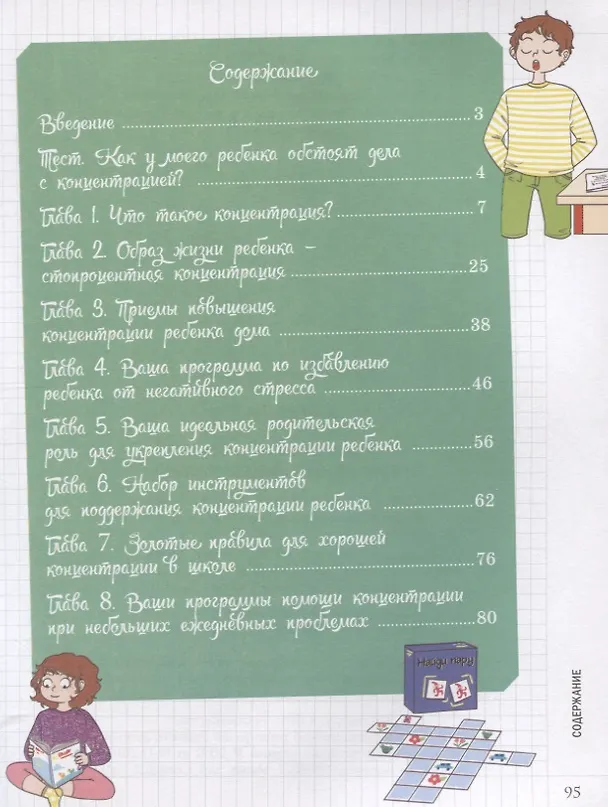 Содержание
Введение ........ 3
Тест. Как у моего ребенка обстоят дела
с концентрацией? ........ 4
Глава 1. Что такое концентрация? ........ 7
Глава 2. Образ жизни ребенка –
стопроцентная концентрация ........ 25
Глава 3. Приемы повышения
концентрации ребенка дома ........ 38
Глава 4. Ваша программа по избавлению
ребенка от негативного стресса ........ 46
Глава 5. Ваша идеальная родительская
роль для укрепления концентрации ребенка ........ 56
Глава 6. Набор инструментов
для поддержания концентрации ребенка ........ 62
Глава 7. Золотые правила для хорошей
концентрации в школе ........ 76
Глава 8. Ваши программы помощи концентрации
при небольших ежедневных проблемах ........ 80
Найди пару
СОДЕРЖАНИЕ
95